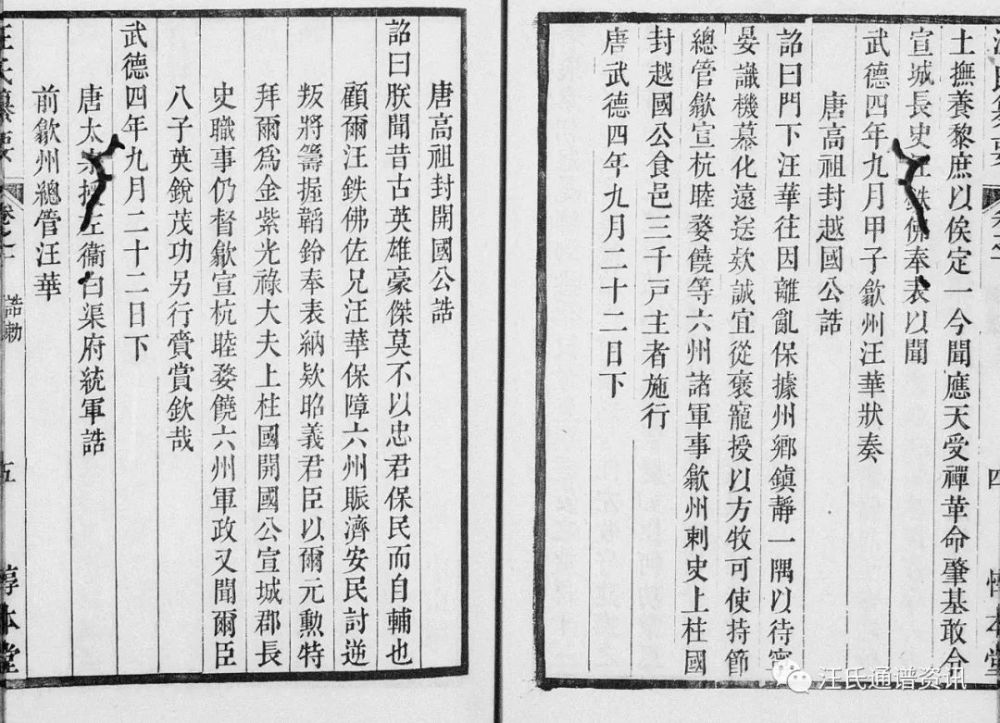 土撫養黎庶以俟定一今聞應天受禪革命肇基敢分
宣城長史汪鉄佛奉表以聞
武德四年九月甲子歙州汪華狀奏
唐高祖封越國公誥
詔曰門下汪華往因離亂保據州鄉鎮靜一隅以待寧
晏識機慕化遠送欵誠宜從褒寵授以方牧可使持節
總管歙宣杭睦婺饒等六州諸軍事歙州刺史上柱國
封越國公食邑三千戸主者施行
唐武德四年九月二十二日下
四
唐高祖封開國公誥
詔曰朕聞昔古英雄豪傑莫不以忠君保民而自輔也
顧爾汪鉄佛佐兄汪華保障六州賑濟安民討逆
叛將籌握韜鈐奉表納欵昭義君臣以爾元勲特
拜爾爲金紫光祿大夫上柱國開國公宣城郡長
史職事仍督歙宣杭睦婺饒六州軍政又聞爾臣
八子英銳茂功另行賫賞欽哉
武德四年九月二十二日下
唐太宗授左衞白渠府統軍誥
前歙州總管汪華
汪氏纂要 卷之 誥勅 五 惇本堂
汪氏通谱资讯